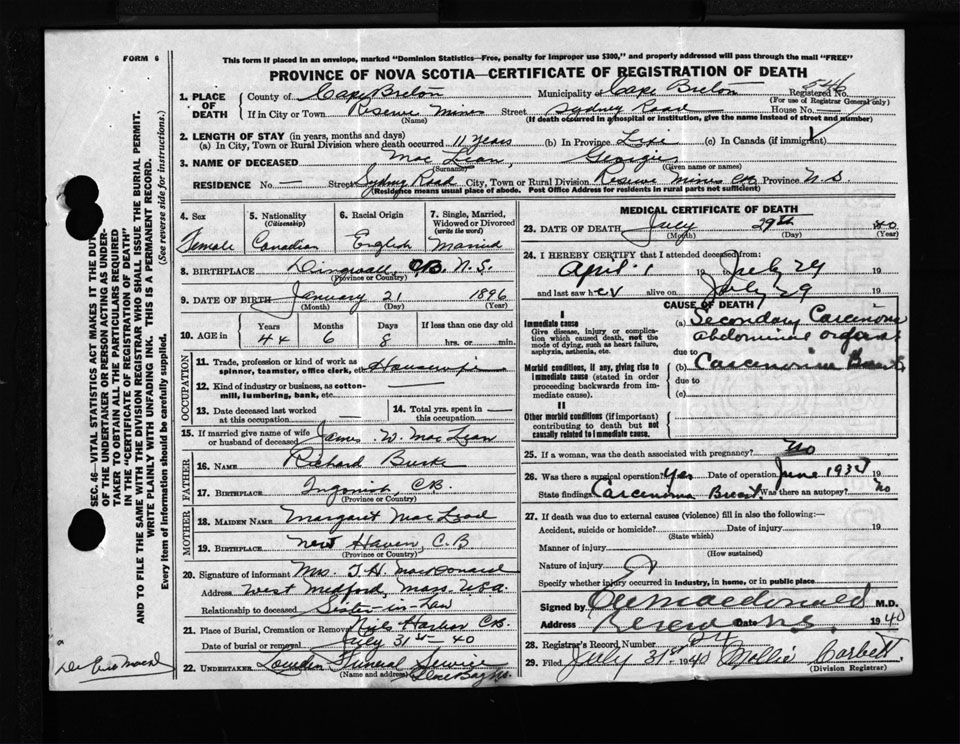 FORM 6
This form if placed in an envelope, marked "Dominion Statistics—Free, penalty for improper use $300," and properly addressed will pass through the mail "FREE"
PROVINCE OF NOVA SCOTIA—CERTIFICATE OF REGISTRATION OF DEATH
1. PLACE OF DEATH County of Cape Breton Municipality of Cape Breton Registered No.
(For use of Registrar General only)
If in City or Town Reserve Mines Street Sydney Road House No. —
(Name) (If death occurred in a hospital or institution, give the name instead of street and number)
2. LENGTH OF STAY (in years, months and days)
(a) In City, Town or Rural Division where death occurred 11 years (b) In Province Life (c) In Canada (if immigrant)
3. NAME OF DECEASED Mac Lean, Georgie
(Surname) (Given name or names)
RESIDENCE No. — Street Sydney Road City, Town or Rural Division Reserve Mines CB Province N S
(Residence means usual place of abode. Post Office Address for residents in rural parts not sufficient)
4. Sex Female
5. Nationality (Citizenship) Canadian
6. Racial Origin English
7. Single, Married, Widowed or Divorced (write the word) Married
8. BIRTHPLACE Dingwall, CB. N.S.
(Province or Country)
9. DATE OF BIRTH January 21 1896
(Month) (Day) (Year)
10. AGE in Years 44 Months 6 Days 8 If less than one day old hrs. or min.
OCCUPATION
11. Trade, profession or kind of work as spinner, teamster, office clerk, etc. Housewife
12. Kind of industry or business, as cotton-mill, lumbering, bank, etc. —
13. Date deceased last worked at this occupation —
14. Total yrs. spent in this occupation —
15. If married give name of wife or husband of deceased James W. Mac Lean
FATHER
16. NAME Richard Burke
17. BIRTHPLACE Ingonish, CB.
MOTHER
18. MAIDEN NAME Margaret Mac Leod
19. BIRTHPLACE New Haven, C.B
(Province or Country)
20. Signature of informant Mrs. J. H. MacDonald
Address West Medford, Mass. USA.
Relationship to deceased Sister-in-Law
21. Place of Burial, Cremation or Removal Neils Harbor CB.
Date of burial or removal July 31st - 40
22. UNDERTAKER Funeral Service
(Name and address) Glace Bay NS.
MEDICAL CERTIFICATE OF DEATH
23. DATE OF DEATH July 29th 40
(Month) (Day) (Year)
24. I HEREBY CERTIFY that I attended deceased from:
April 1 19 to July 29 19
and last saw her alive on July 29 19
CAUSE OF DEATH
I
Immediate cause
Give disease, injury or complication which caused death, not the mode of dying, such as heart failure, asphyxia, asthenia, etc.
(a) Secondary Carcinoma abdominal organs
due to
Morbid conditions, if any, giving rise to immediate cause (stated in order proceeding backwards from immediate cause).
(b) Carcinoma Breast
due to
(c)
II
Other morbid conditions (if important) contributing to death but not causally related to immediate cause.
25. If a woman, was the death associated with pregnancy? No
26. Was there a surgical operation? Yes Date of operation June 19
State findings Carcinoma Breast Was there an autopsy? No
27. If death was due to external causes (violence) fill in also the following:—
Accident, suicide or homicide? Date of injury 19
(State which)
Manner of injury
(How sustained)
Nature of injury
Specify whether injury occurred in industry, in home, or in public place
Signed by Macdonald M.D.
Address Reserve NS. Date 1940
28. Registrar's Record Number 24
29. Filed July 31st 1940 Mollie Corbett
(Division Registrar)
SEC. 46—VITAL STATISTICS ACT MAKES IT THE DUTY OF THE UNDERTAKER OR PERSON ACTING AS UNDERTAKER TO OBTAIN ALL THE PARTICULARS REQUIRED IN THE "CERTIFICATE OF REGISTRATION OF DEATH" AND TO FILE THE SAME WITH THE DIVISION REGISTRAR WHO SHALL ISSUE THE BURIAL PERMIT.
WRITE PLAINLY WITH UNFADING INK. THIS IS A PERMANENT RECORD.
Every item of information should be carefully supplied. (See reverse side for instructions).